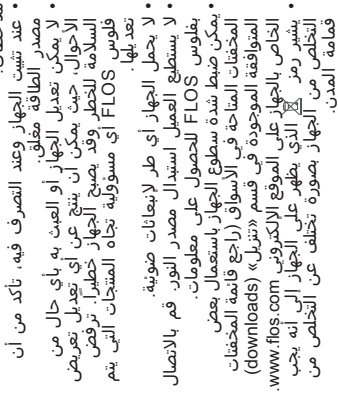 • عند تثبيت الجهاز وعند التصرف فيه، تأكد من أن
مصدر الطاقة مغلق.
• لا يمكن تعديل الجهاز أو العبث به بأي حال من
الأحوال، حيث يمكن أن ينتج عن أي تعديل تعريض
السلامة للخطر وقد يصبح الجهاز خطيرًا. ترفض
فلوس FLOS أي مسؤولية تجاه المنتجات التي يتم
تعديلها.
• لا يحمل الجهاز أي طر لإنبعاثات ضوئية.
• لا يستطيع العميل استبدال مصدر النور. قم بالاتصال
بفلوس FLOS للحصول على معلومات.
• يمكن ضبط شدة سطوع الجهاز باستعمال بعض
المخفتات المتاحة في الأسواق (راجع قائمة المخفتات
المتوافقة الموجودة في قسم «تنزيل» (downloads)
الخاص بالجهاز على الموقع الإلكتروني www.flos.com.
• يشير رمز الذي يظهر على الجهاز إلى أنه يجب
التخلص من الجهاز بصورة تختلف عن التخلص من
قمامة المدن.